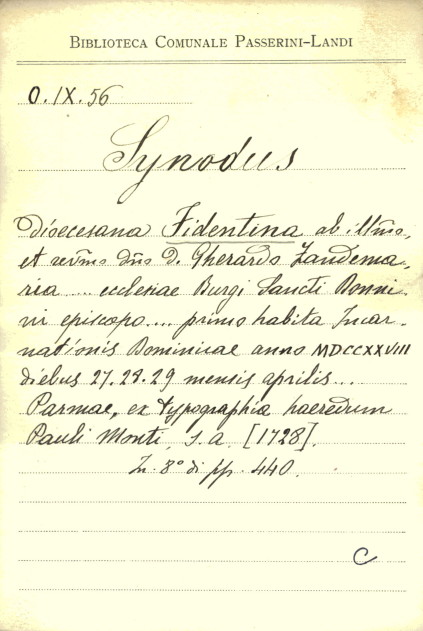 BIBLIOTECA COMUNALE PASSERINI-LANDI
O.IX.56
Synodus
dioecesana Fidentina ab ill͞mo,
et rev͞mo d͞no D. Gherardo Zandema-
ria ... ecclesiae Burgi Sancti Donni-
ni episcopo.... primo habita Incar-
nationis Dominicae anno MDCCXXVIII
diebus 27.28.29 mensis aprilis...
Parmae, ex typographia haeredum
Pauli Monti, s.a. [1728].
In 8° di pp. 440.
C